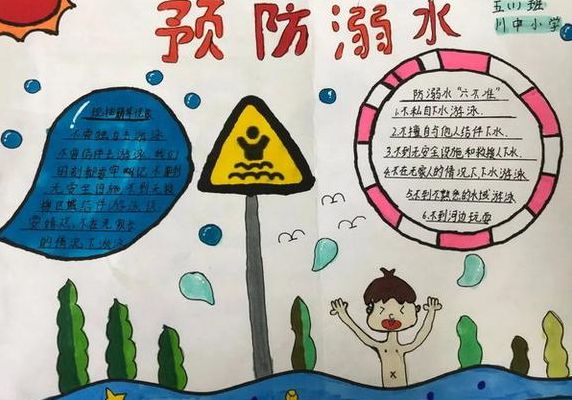 预防溺水
五(1)班
川中小学
不要独自去游泳
不要结伴去游泳,我们
无安全设施,不到无救
的情况下游泳
防溺水“六不准”
1.不私自下水游泳.
2.不擅自与他人结伴下水.
3.不到无安全设施和救援人下水.
4.不在无家人的情况下下水游泳
5.不到不熟悉的水域游泳
6.不到河边玩耍